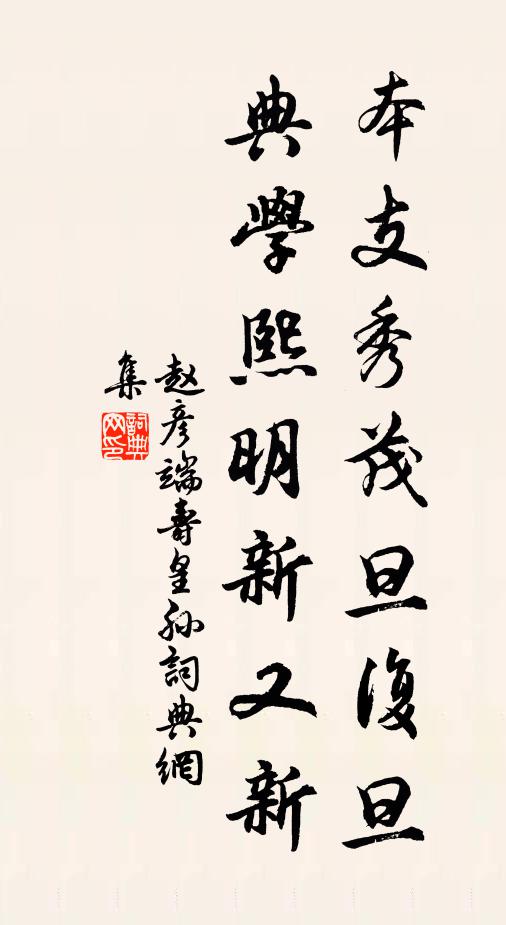 本支秀茂旦復旦
典學熙明新又新
赵彥端壽皇孙詞典網
集
詞典
网印